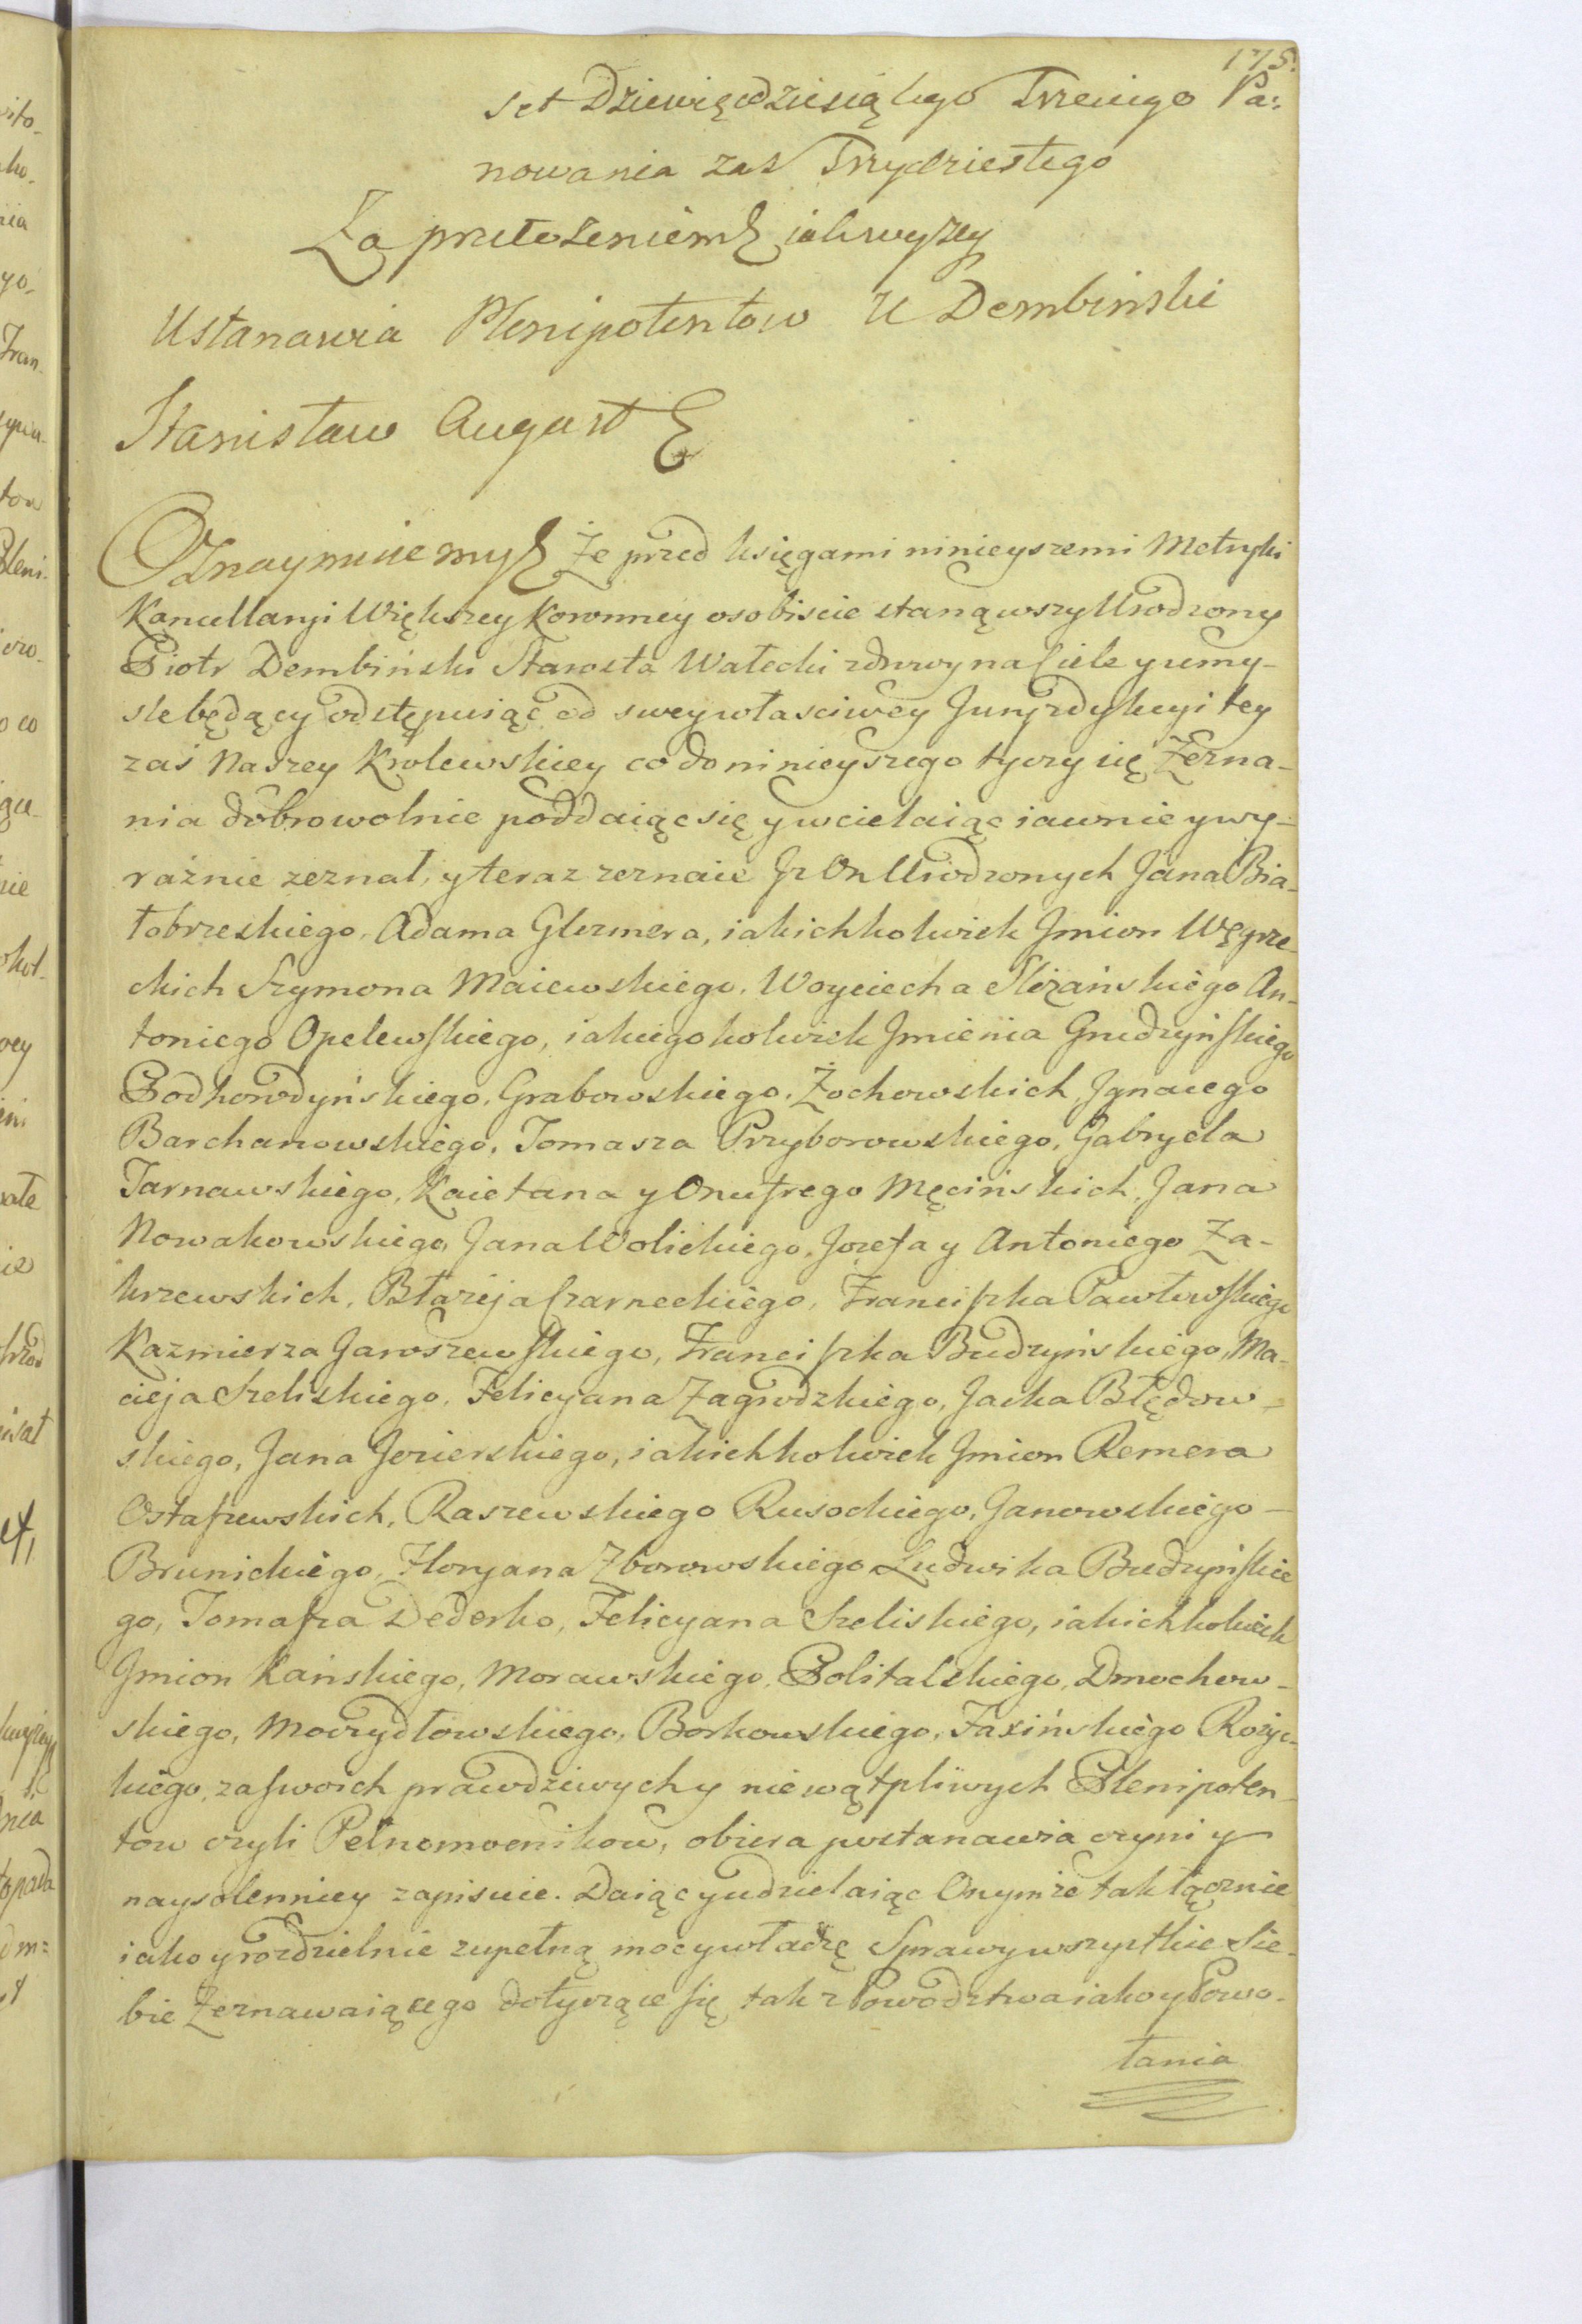 175.
set Dziewięćdziesiątego Trzeciego Pa:
nowania zaś Trzydziestego
Za przełożeniem jak wyżey
Ustanawia Plenipotentow U Dembinski
Stanisław August
Oznaymuiemy Że przed księgami ninieyszemi Metryki
Kancellaryi Większey Koronney osobiscie stanąwszy Urodzony
Piotr Dembiński Starosta Wałecki zdrowy na ciele y umy-
sle będący odstępuiąc od swey własciwey Juryzdykcyi tey
zaś Naszey Krolewskiey co do ninieyszego tyczy się Zezna-
nia dobrowolnie poddaiąc się y wcielaiąc iawnie y wy-
raźnie zeznał, y teraz zeznaie Iż On Urodzonych Jana Bia-
łobrzeskiego, Adama Glozmera, iakichkolwiek Jmion Węgrze-
ckich Szymona Maiewskiego, Woyciecha Slizańskiego An-
toniego Opelewskiego, iakiegokolwiek Jmienia Grudzyńskiego
Podhorodyńskiego, Grabowskiego, Żochowskich, Jgnacego
Barchanowskiego, Tomasza Przyborowskiego, Gabryela
Tarnawskiego, Kaietana y Onufrego Męcińskich, Jana
Nowakowskiego, Jana Wolickiego, Jozefa y Antoniego Za-
krzewskich, Błażeja Czarneckiego, Franciszka Pawłowskiego
Kazmierza Jaroszewskiego, Franciszka Budzyńskiego, Ma-
cieja Szeliskiego, Felicyana Zagrodzkiego, Jacka Błędow-
skiego, Jana Jezierskiego, iakichkolwiek Jmion Remera
Ostaszewskich, Raszewskiego Rusockiego, Janowskiego -
Brunickiego, Floryana Zborowskiego Ludwika Budzyńskie
go, Tomasza Dederko, Felicyana Szeliskiego, iakichkolwiek
Jmion Kańskiego, Morawskiego, Politalskiego, Dmochow-
skiego, Moczydłowskiego, Borkowskiego, Jaxińskiego Rożyc-
kiego, za swoich prawdziwych y niewątpliwych Plenipoten-
tow czyli Pełnomocnikow, obiera postanawia czyni y
naysolenniey zapisuie. Daiąc y udzielaiąc Onymże tak łącznie
iako y rozdzielnie zupełną moc y władzę Sprawy wszystkie sie-
bie Zeznawaiącego dotyczące się tak z Powodztwa iako y Powo-
łania